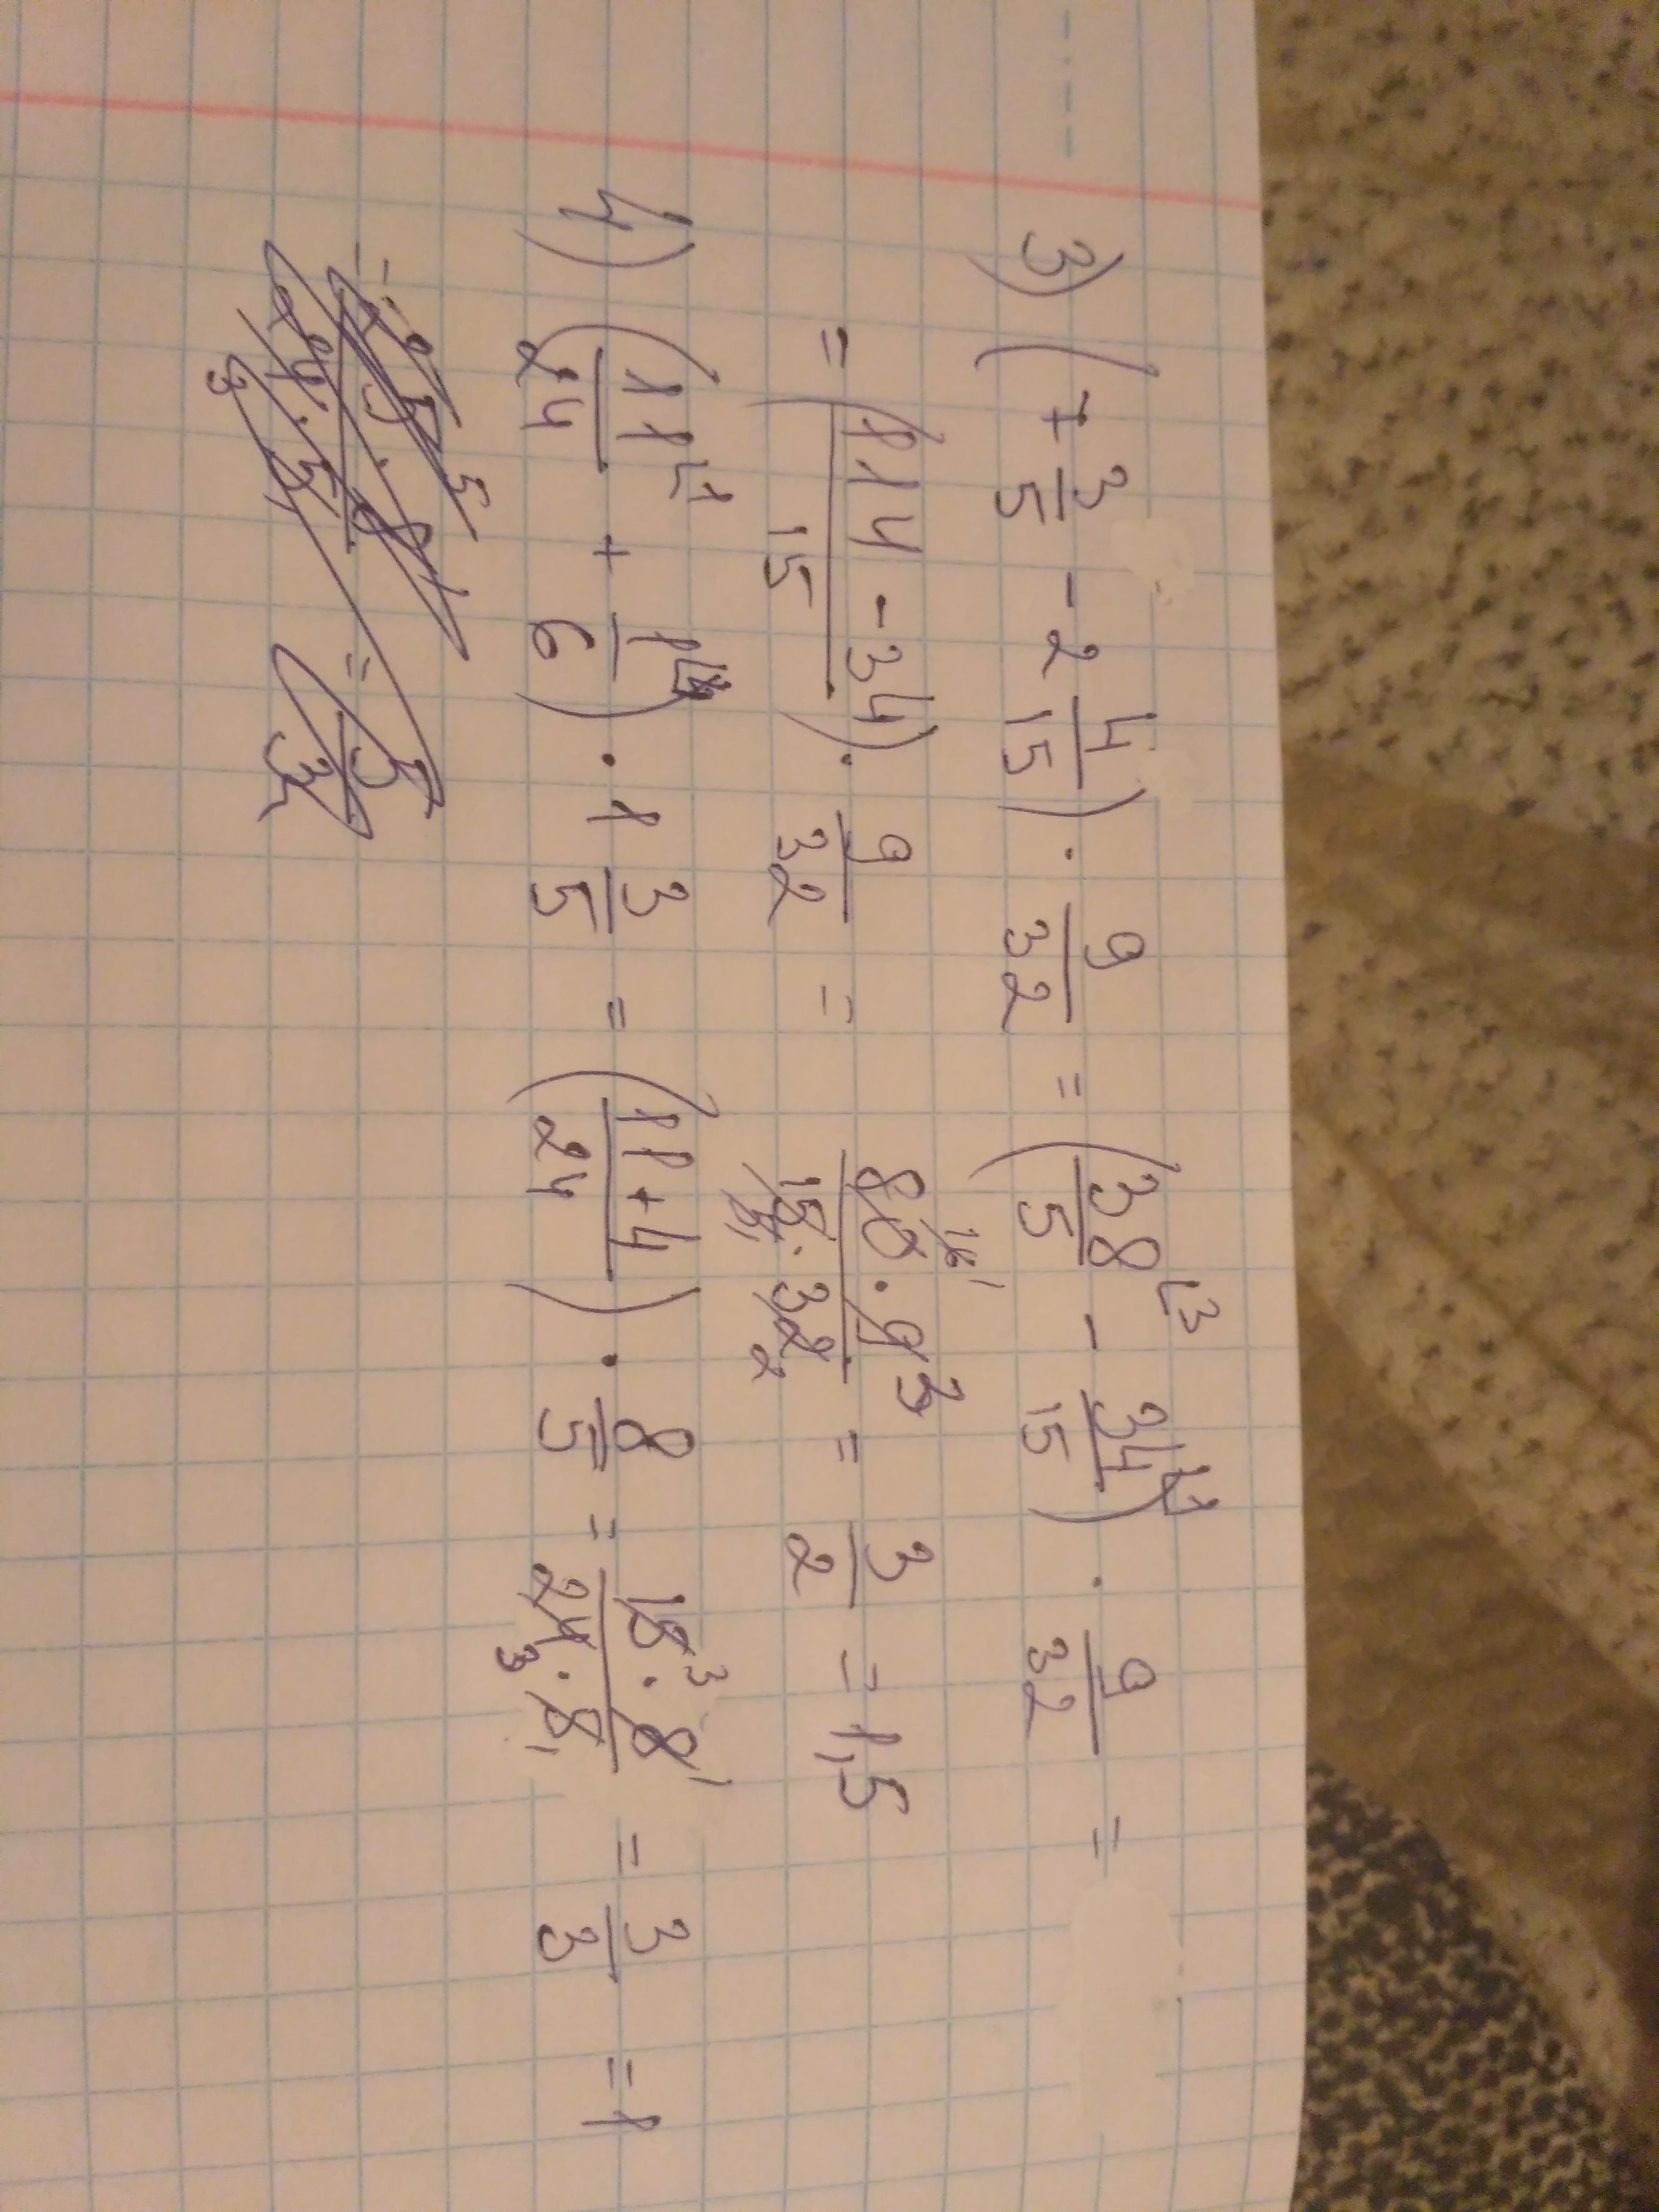 3) (7 3/5 - 2 4/15) · 9/32 = (38/5 ⌊3 - 34/15 ⌊1) · 9/32 =
= (114 - 34)/15 · 9/32 = (80 · 9 3)/(15 · 32 2) = 3/2 = 1,5
4) (11/24 ⌊1 + 1/6 ⌊4) · 1 3/5 = ((11 + 4)/24) · 8/5 = (15 3 · 8 1)/(24 3 · 5 1) = 3/3 = 1
= 5/3